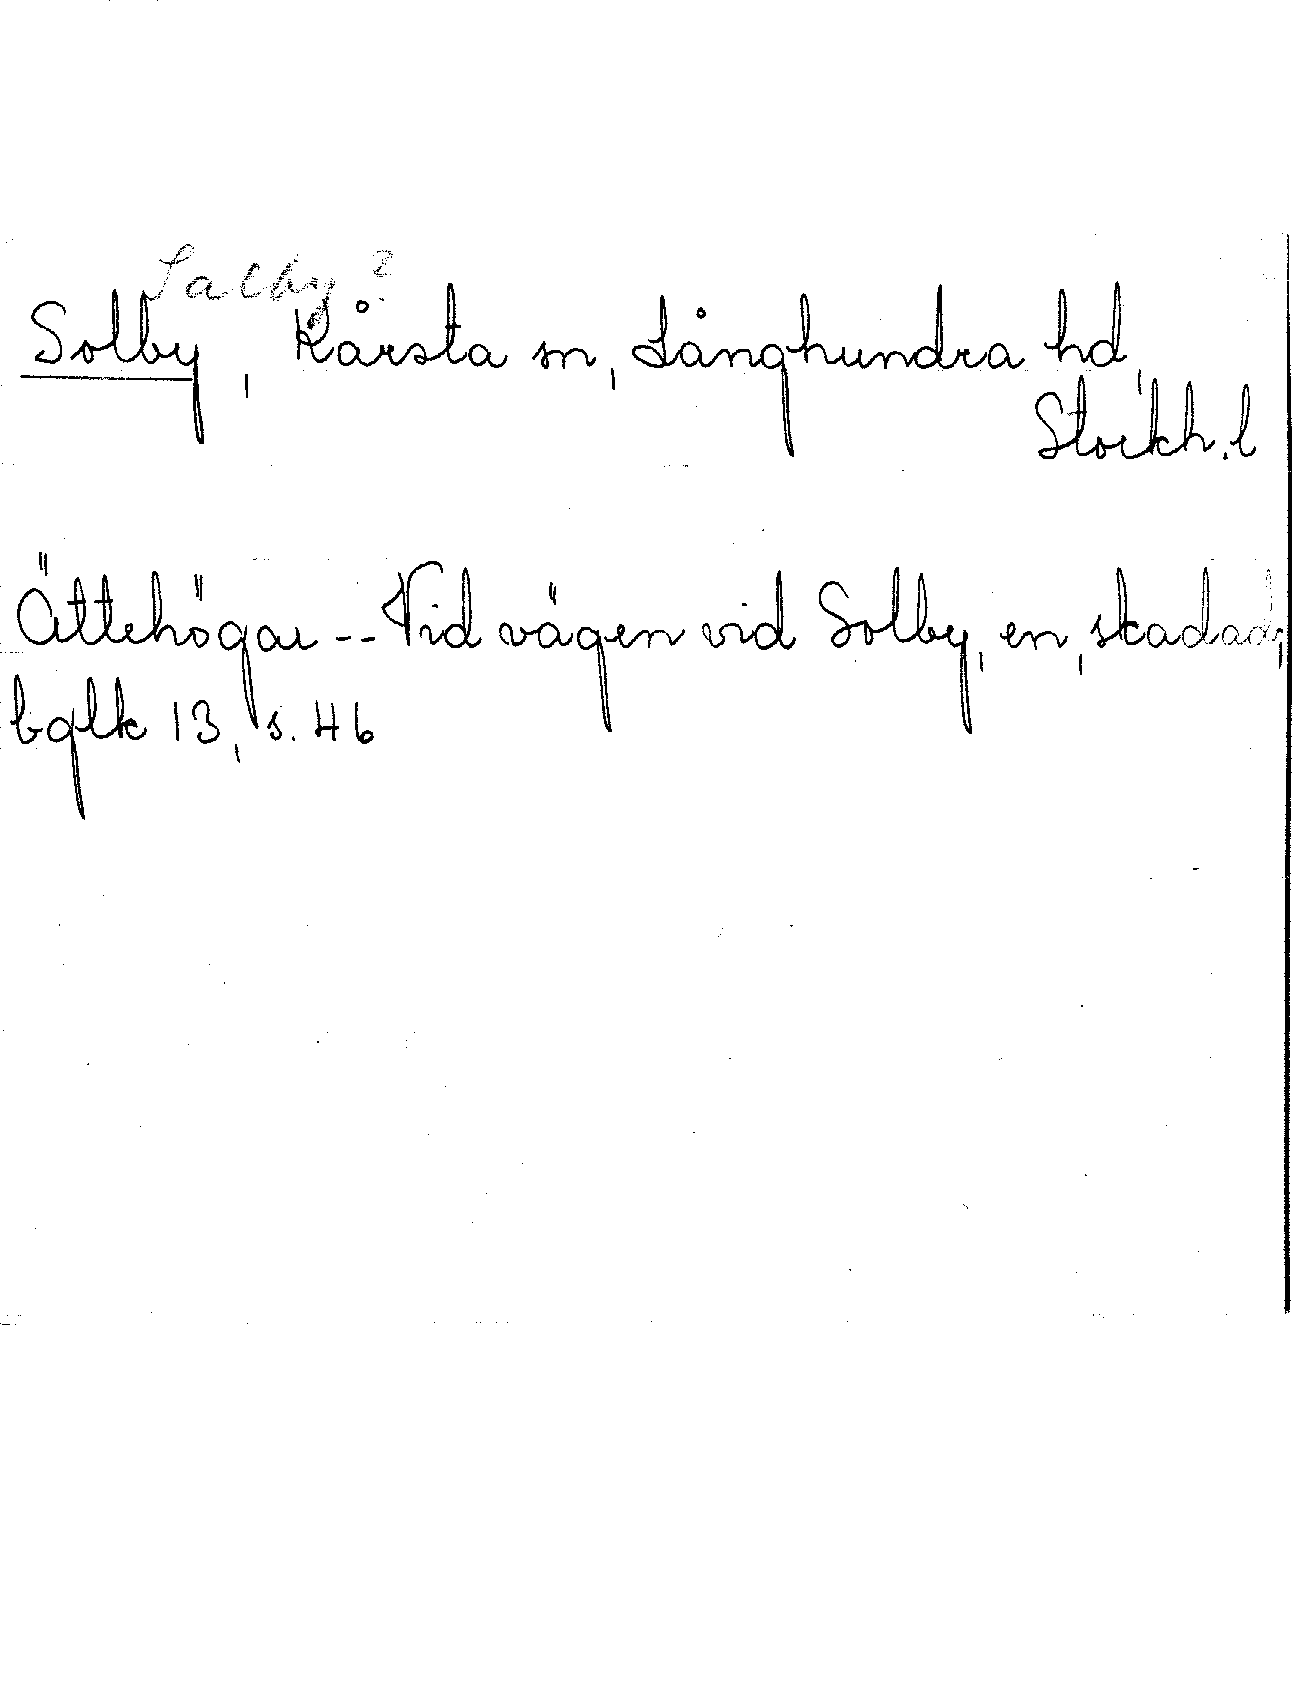 Salby?
Solby, Kårsta sn, Långhundra hd,
Stockh. l
Ättehögar -- Vid vägen vid Solby, en, skadad,
bglk 13, s. 46